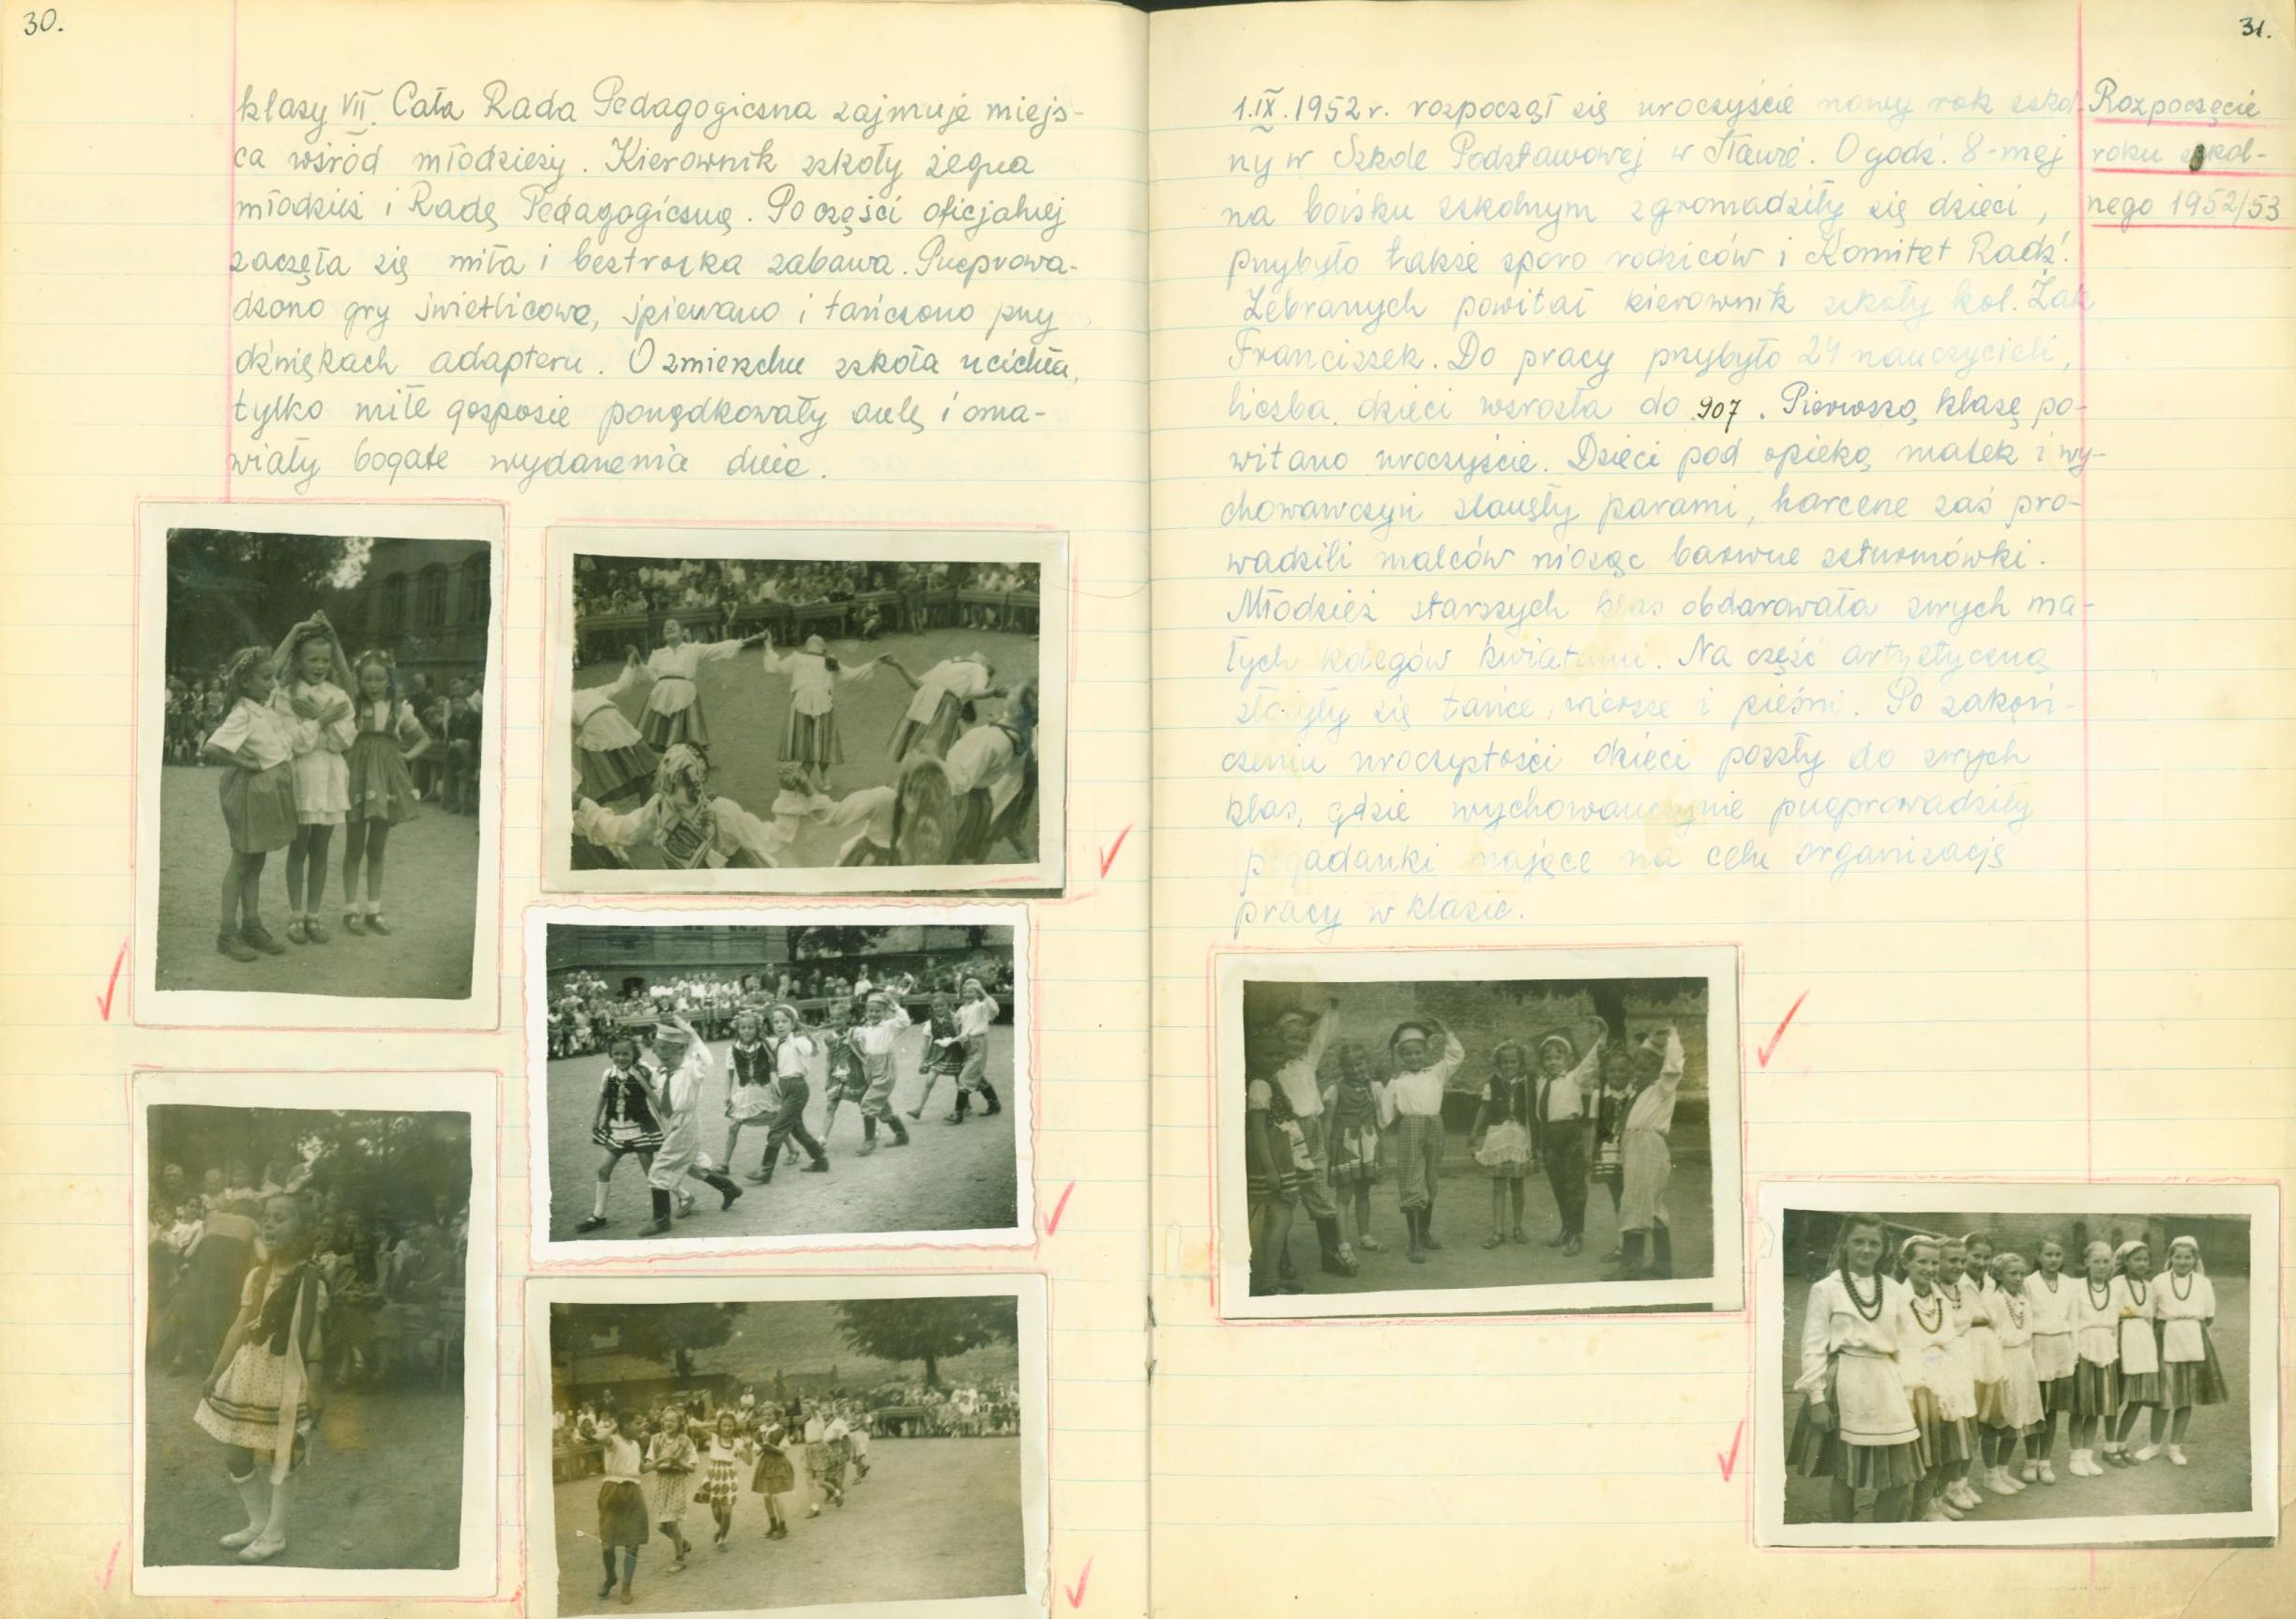 30.
klasy VII. Cała Rada Pedagogiczna zajmuje miejs-
ca wśród młodzieży. Kierownik szkoły żegna
młodzież i Radę Pedagogiczną. Po części oficjalnej
zaczęła się miła i beztroska zabawa. Przeprowa-
dzono gry świetlicowe, śpiewano i tańczono przy
dźwiękach adapteru. O zmierzchu szkoła ucichła,
tylko miłe gosposie porządkowały aulę i oma-
wiały bogate wydarzenia dnia.
31.
1.IX.1952 r. rozpoczął się uroczyście nowy rok szkol
ny w Szkole Podstawowej w . O godz. 8-mej
na boisku szkolnym zgromadziły się dzieci,
przybyło także sporo rodziców i Komitet Rodz.
Zebranych powitał kierownik szkoły kol. Żak
Franciszek. Do pracy przybyło 24 nauczycieli,
liczba dzieci wzrosła do 907. Pierwszą klasę po-
witano uroczyście. Dzieci pod opieką matek i wy-
chowawczyń stanęły parami, harcerze zaś pro-
wadzili malców niosąc barwne szturmówki.
Młodzież starszych klas obdarowała swych ma-
łych kolegów kwiatami. Na część artystyczną
złożyły się tańce, wiersze i pieśni. Po zakoń-
czeniu uroczystości dzieci poszły do swych
klas, gdzie wychowawczynie przeprowadziły
pogadanki mające na celu organizację
pracy w klasie.
Rozpoczęcie
roku szkol-
nego 1952/53